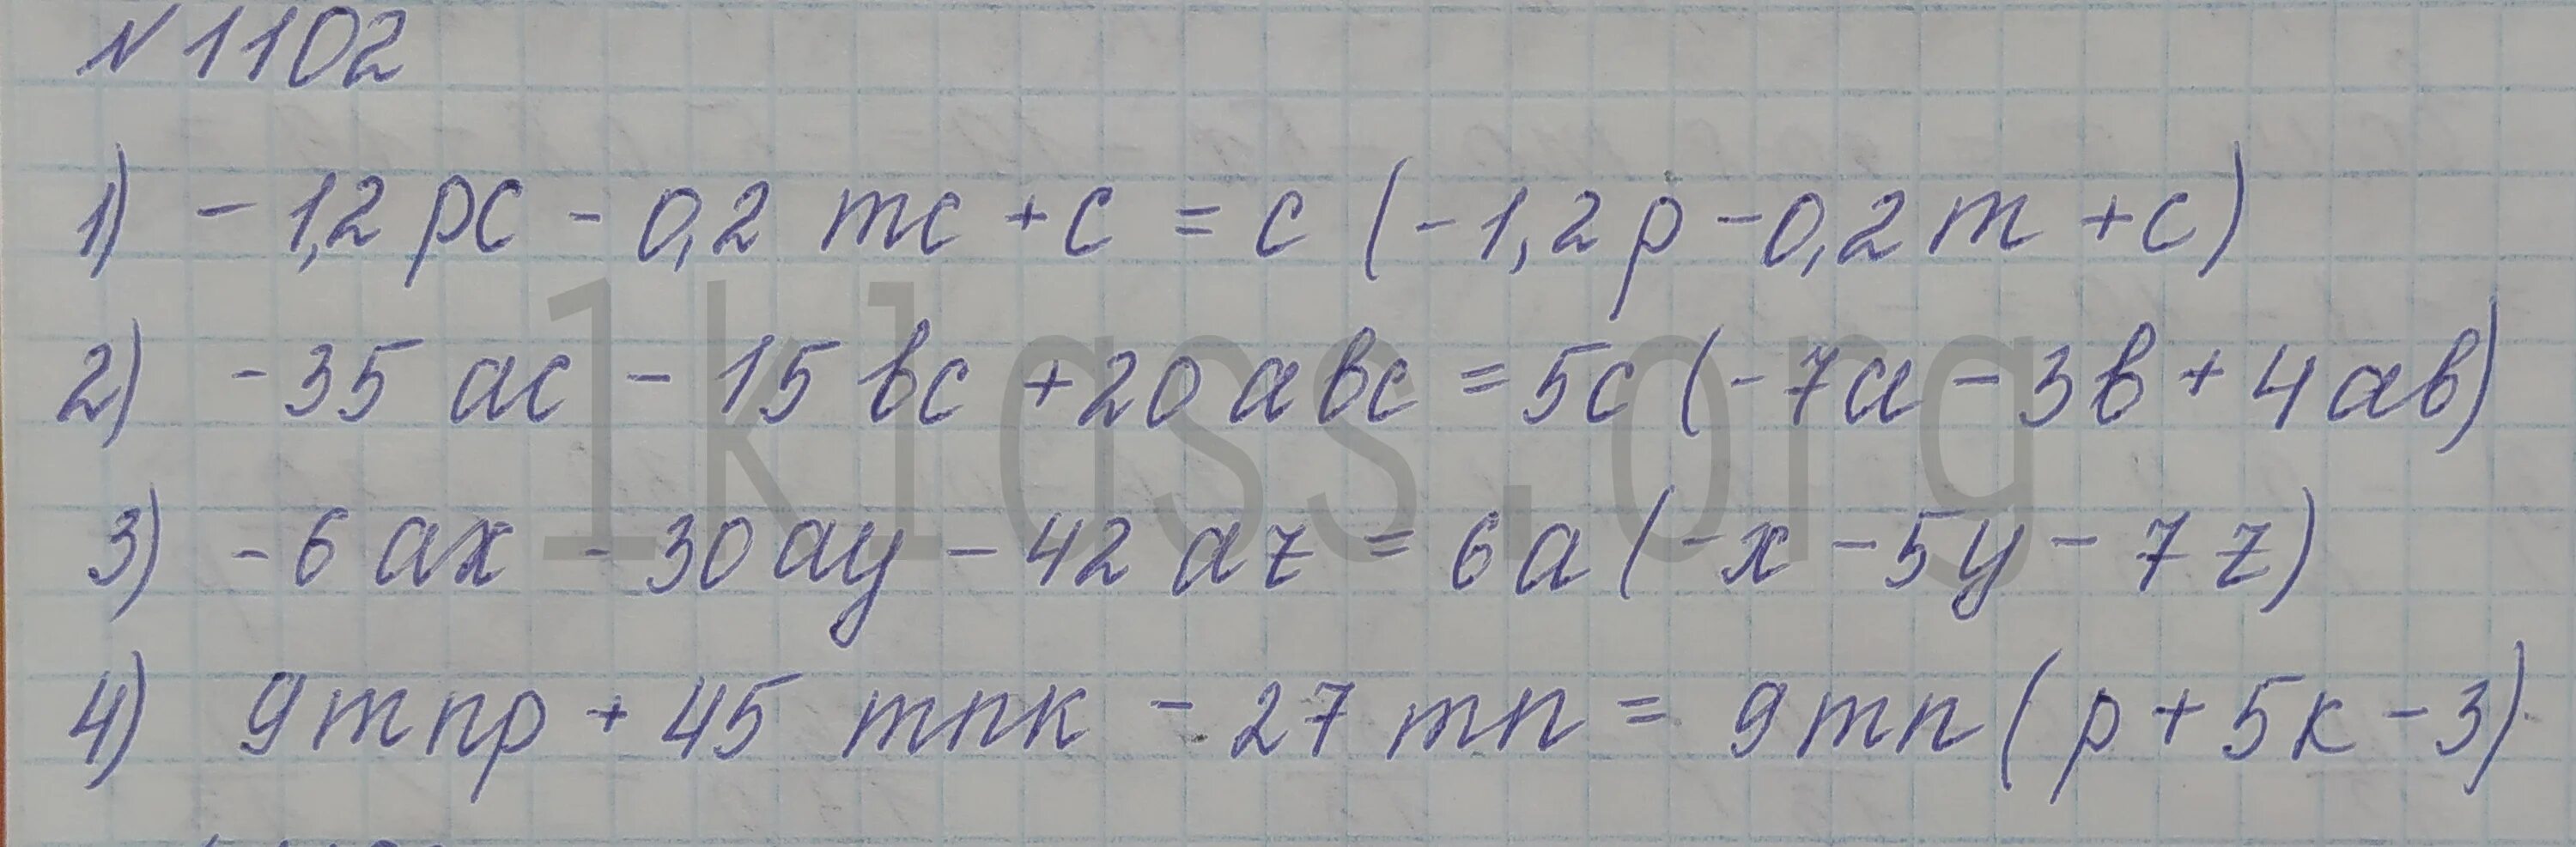 №1102
1) -1,2 pc - 0,2 mc + c = c (-1,2p - 0,2m + c)
2) -35 ac - 15 bc + 20 abc = 5c (-7a - 3b + 4ab)
3) -6 ax - 30 ay - 42 az = 6a (-x - 5y - 7z)
4) 9mnp + 45 mnk - 27 mn = 9mn (p + 5k - 3)
1klass.org